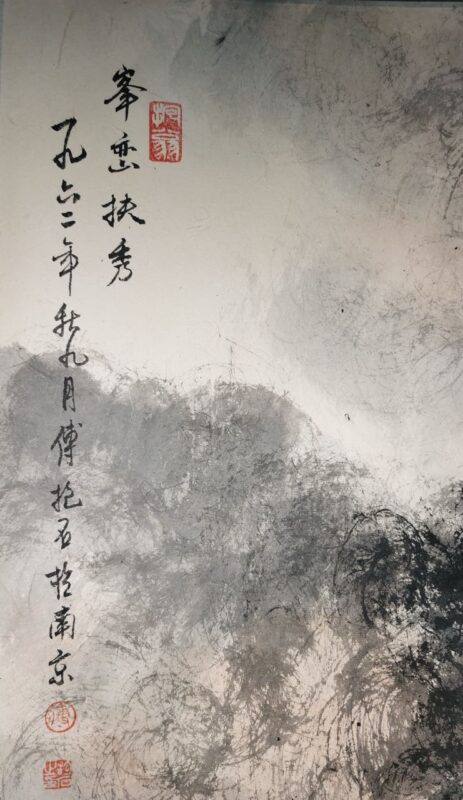 峯峦扶秀
一九六二年秋九月傅抱石於南京